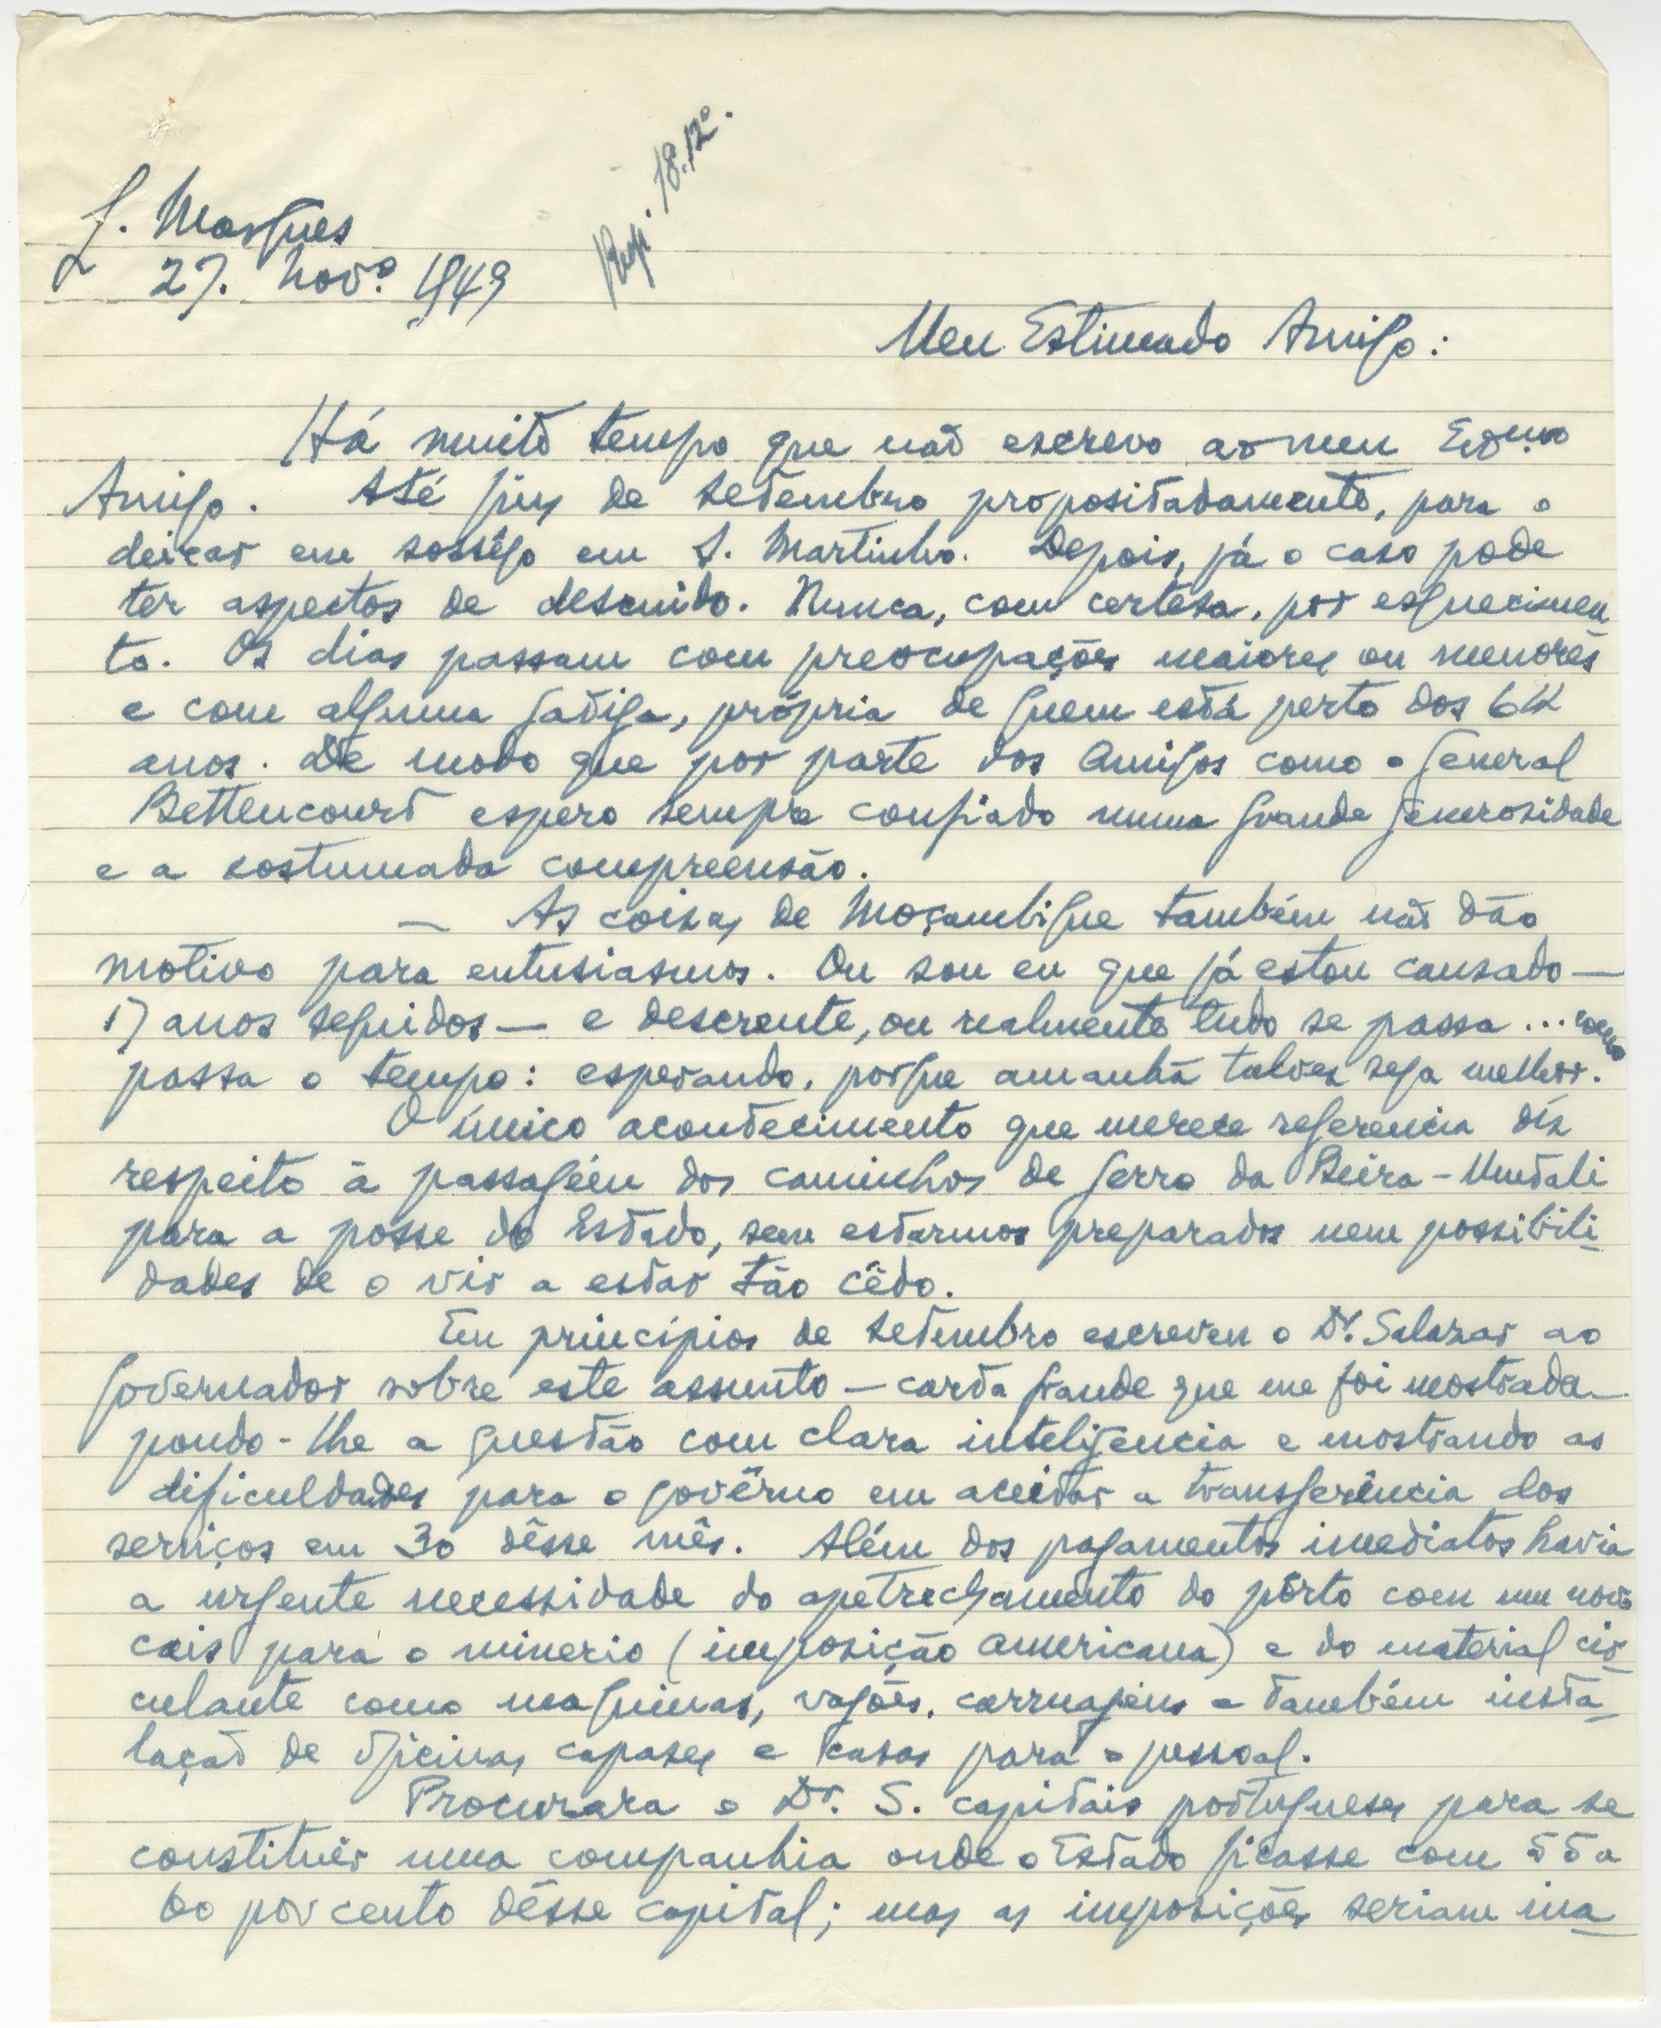 L. Marques
27. Novº. 1949
18.12º.
Meu Estimado Amigo:
Há muito tempo que não escrevo ao meu Exmo
Amigo. Até fins de setembro propositadamente, para o
deixar em sossêgo em S. Martinho. Depois, já o caso pode
ter aspectos de descuido. Nunca, com certesa, por esquecimen
to. Os dias passam com preocupações maiores ou menores
e com alguma fatiga, própria de quem está perto dos 64
anos. De modo que por parte dos Amigos como o General
Bettencourt espero sempre confiado numa grande generosidade
e a costumada compreensão.
— As coisas de Moçambique também não dão
motivo para entusiasmos. Ou sou eu que já estou cansado —
17 anos seguidos — e descrente, ou realmente tudo se passa ... como
passa o tempo: esperando, porque amanhã talvez seja melhor.
O único acontecimento que merece referencia diz
respeito à passagém dos caminhos de ferro da Beira - Umtali
para a posse do Estado, sem estarmos preparados nem possibili-
dades de o vir a estar tão cêdo.
Em princípios de setembro escreveu o Dr. Salazar ao
Governador sobre este assunto — carta grande que me foi mostrada —
pondo-lhe a questão com clara inteligencia e mostrando as
dificuldades para o govêrno em aceitar a transferência dos
serviços em 30 dêsse mês. Além dos pagamentos imediatos havia
a urgente necessidade do apetrechamento do pôrto com um novo
cais para o minerio (imposição americana) e do material cir-
culante como maquinas, vagões, carruagens e também insta-
lação de oficinas capazes e casas para o pessoal.
Procurara o Dr. S. capitais portugueses para se
constituir uma companhia onde o Estado ficasse com 55 a
60 por cento dêsse capital; mas as imposições seriam ina-